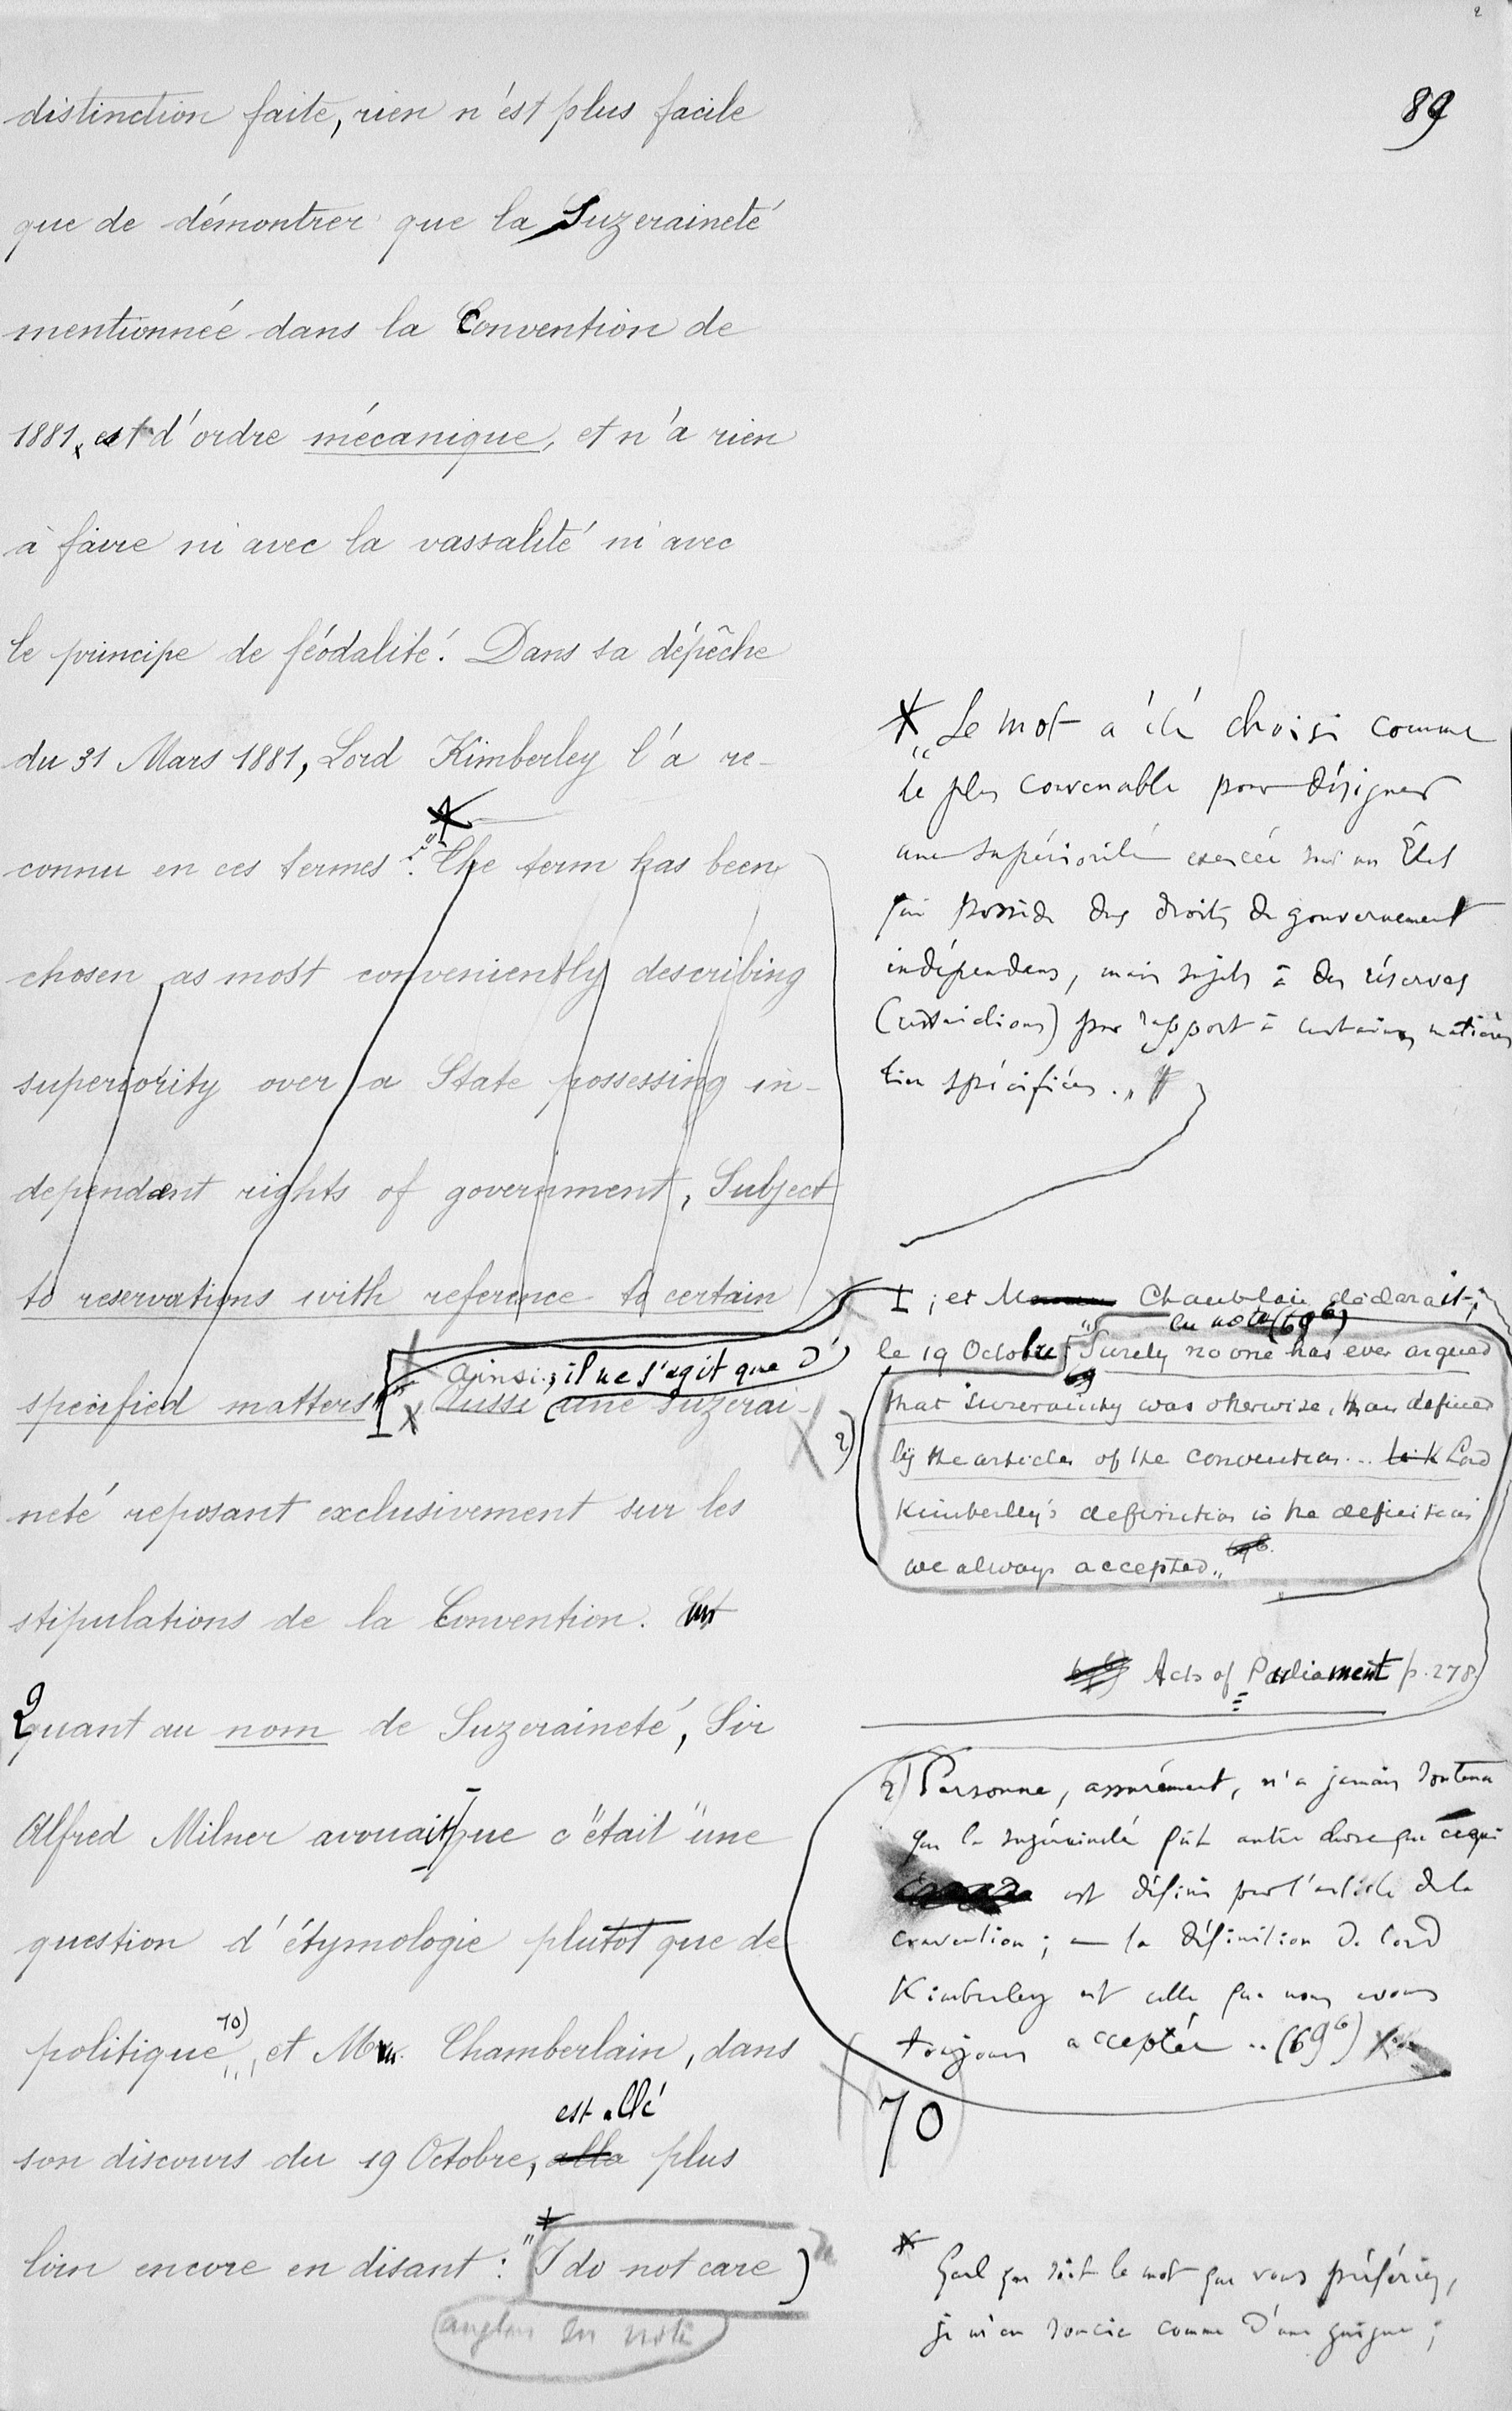 2
89
distinction faite, rien n'est plus facile
que de démontrer que la Suzeraineté
mentionnée dans la Convention de
1881, est d'ordre mécanique, et n'a rien
à faire ni avec la vassalité ni avec
le principe de féodalité. Dans sa dépêche
du 31 Mars 1881, Lord Kimberley l'a re-
connu en ces termes : "The term has been
chosen as most conveniently describing
superiority over a State possessing in-
dependent rights of government, Subject
to reservations with reference to certain
specified matters"
Ainsi, il ne s'agit que d'
Aussi une suzerai-
neté reposant exclusivement sur les
stipulations de la Convention.
Quant au nom de Suzeraineté, Sir
Alfred Milner avouait que c'était une
question d'étymologie plutôt que de
politique 70), et Mr. Chamberlain, dans
est allé
son discours du 19 Octobre, alla plus
loin encore en disant : "I do not care
anglais en note
* Le mot a été choisi comme
le plus convenable pour désigner
une supériorité exercée sur un État
qui possède des droits de gouvernement
indépendans, mais sujets à des réserves
(restrictions) par rapport à certaines matières
bien spécifiées."
I ; et M. déclarait,
en note (69 6)
le 19 Octobre : "Surely no one has ever argued
2) that suzerainty was otherwise, than defined
by the articles of the convention... Lord
Kimberley's definition is the definition
we always accepted"
Acts of Parliament p. 278.
2) Personne, assurément, n'a jamais soutenu
que la suzeraineté fût autre chose que ce qui
est défini par l'article de la
convention ; — la définition de Lord
Kimberley est celle que nous avons
toujours acceptée .. (69 6)
70
* Quel que soit le mot que vous préfériez,
je m'en soucie comme d'une guigne ;